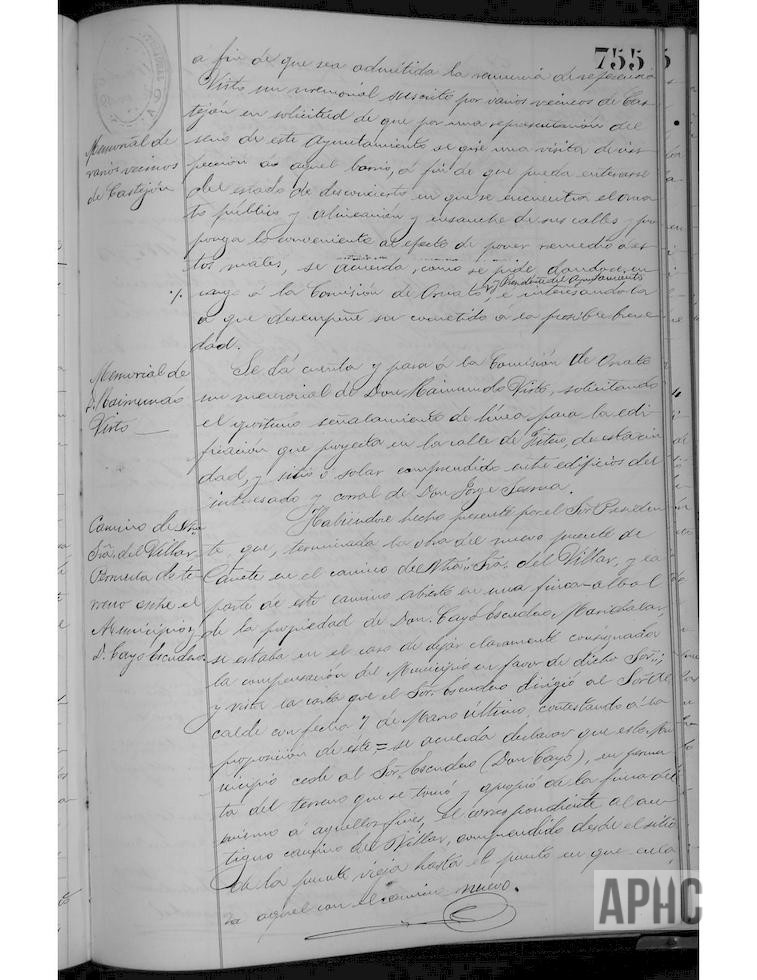 755
a fin de que sea admitida la renuncia de referencia
Memorial de
varios vecinos
de Castejón
Visto un memorial suscrito por varios vecinos de Cas-
tejón en solicitud de que por una representación del
seno de este Ayuntamiento se gire una visita de ins-
pección a aquel barrio, á fin de que pueda enterarse
del estado de desconcierto en que se encuentra el orna-
to público y alineación y ensanche de sus calles y pro-
ponga lo conveniente al efecto de poner remedio á es-
tos males, se acuerda, como se pide, dandose en-
y Presidente del Ayuntamiento
·/. cargo á la Comisión de Ornato, é interesandola
a que desempeñe su cometido a la posible breve-
dad.
Memorial de
D. Raimundo
Virto
Se dá cuenta y pasa á la Comisión de Ornato
un memorial de Don Raimundo Virto, solicitando
el oportuno señalamiento de línea para la edi-
ficación que proyecta en la calle de Fitero, de esta ciu-
dad, y sitio ó solar comprendido entre edificios del
interesado y corral de Don Jorge Sesma.
Camino de Ntra
Sra. del Villar
Permuta de te-
rreno entre el
Municipio y
D. Cayo Escudero.
Habiendose hecho presente por el Sor. Presiden-
te, que, terminada la obra del nuevo puente de
Cañete en el camino de Ntra. Sra. del Villar, y la
parte de este camino abierto en una finca-olivar
de la propiedad de Don Cayo Escudero Marichalar,
se estaba en el caso de dejar claramente consignada
la compensación del Municipio en favor de dicho Sor.;
y vista la carta que el Sor. Escudero dirigió al Sor. Al-
calde con fecha 7 de Marzo último, contestando á la
proposición de este = se acuerda declarar que este Mu-
nicipio cede al Sor. Escudero (Don Cayo), en permu-
ta del terreno que se tomó y apropió de la finca del
mismo á aquellos fines, el correspondiente al an-
tiguo camino del Villar, comprendido desde el sitio
de la puente vieja hasta el punto en que enla-
za aquel con el camino nuevo.
APHC